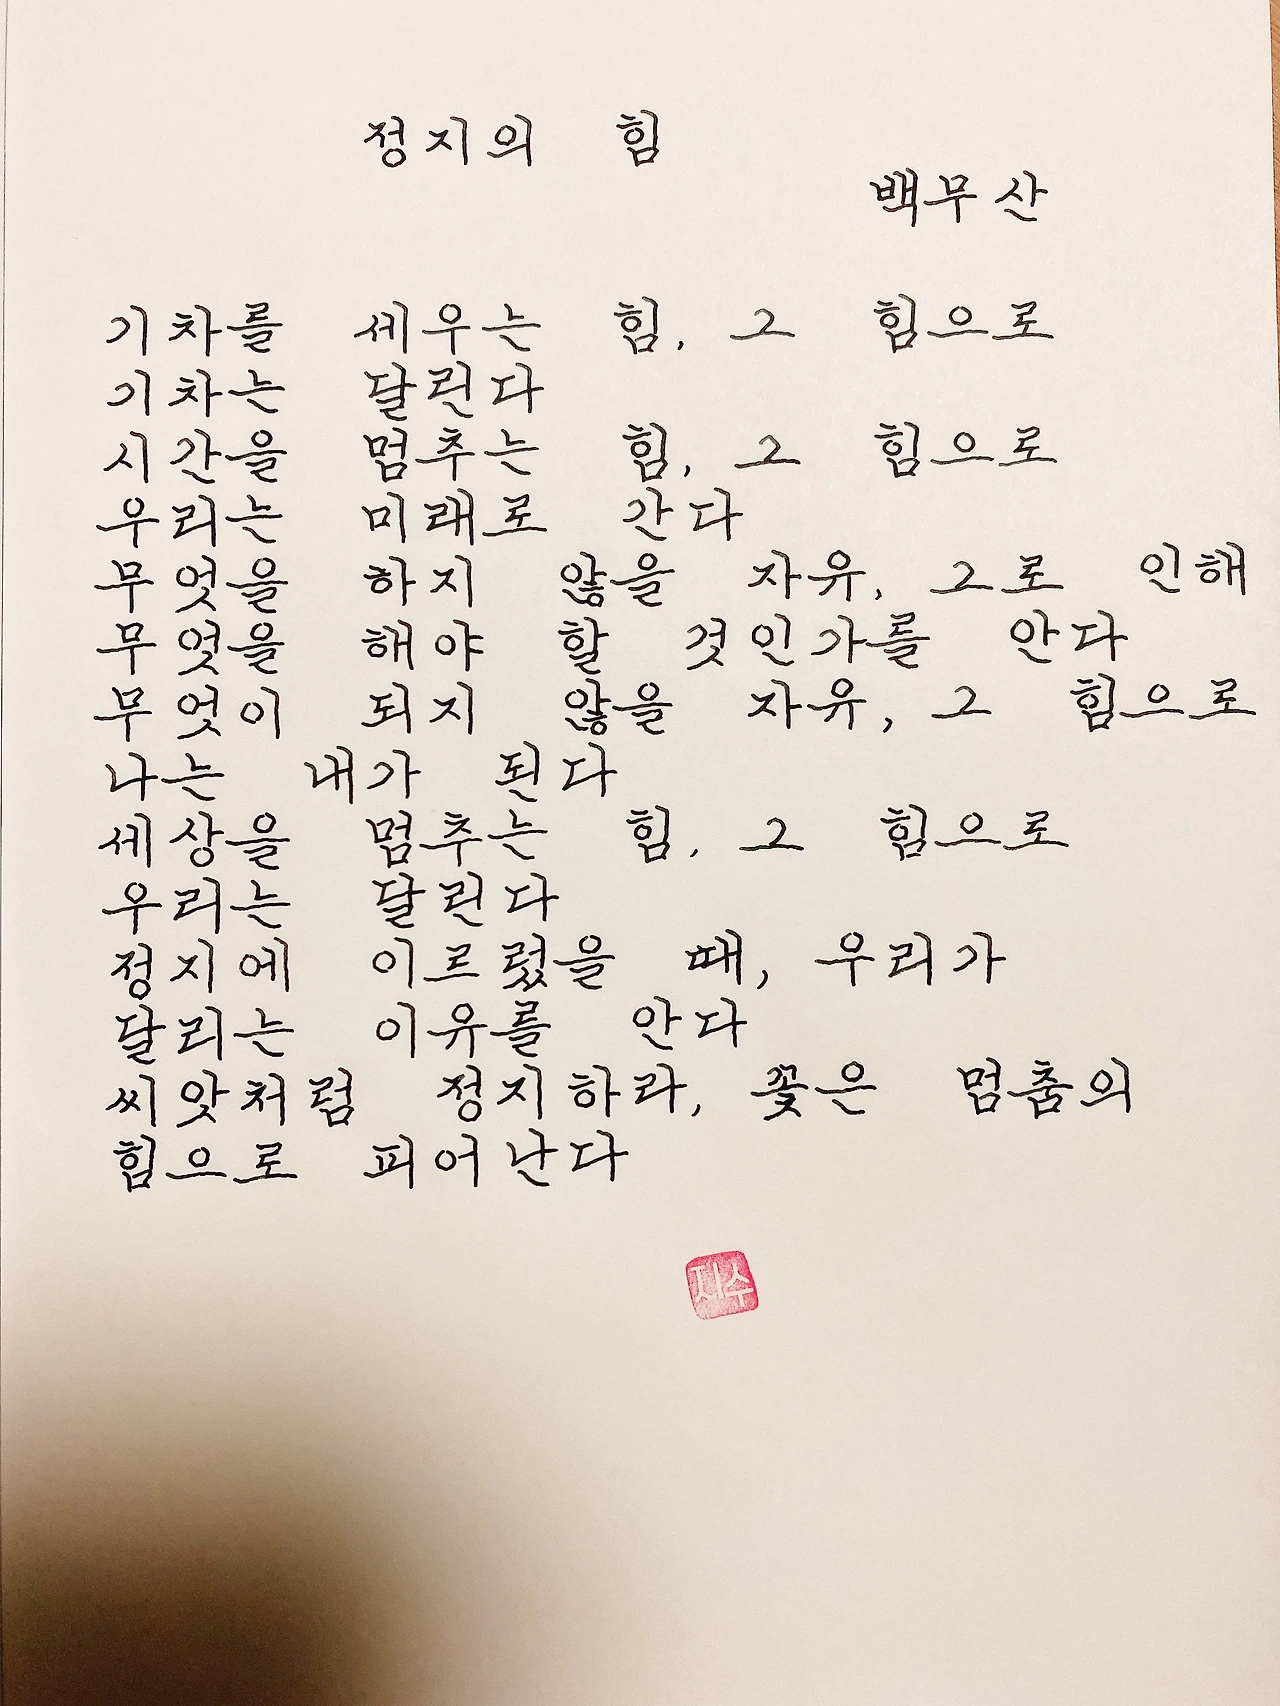 정지의 힘
백무산
기차를 세우는 힘, 그 힘으로
기차는 달린다
시간을 멈추는 힘, 그 힘으로
우리는 미래로 간다
무엇을 하지 않을 자유, 그로 인해
무엇을 해야 할 것인가를 안다
무엇이 되지 않을 자유, 그 힘으로
나는 내가 된다
세상을 멈추는 힘, 그 힘으로
우리는 달린다
정지에 이르렀을 때, 우리가
달리는 이유를 안다
씨앗처럼 정지하라, 꽃은 멈춤의
힘으로 피어난다
지수